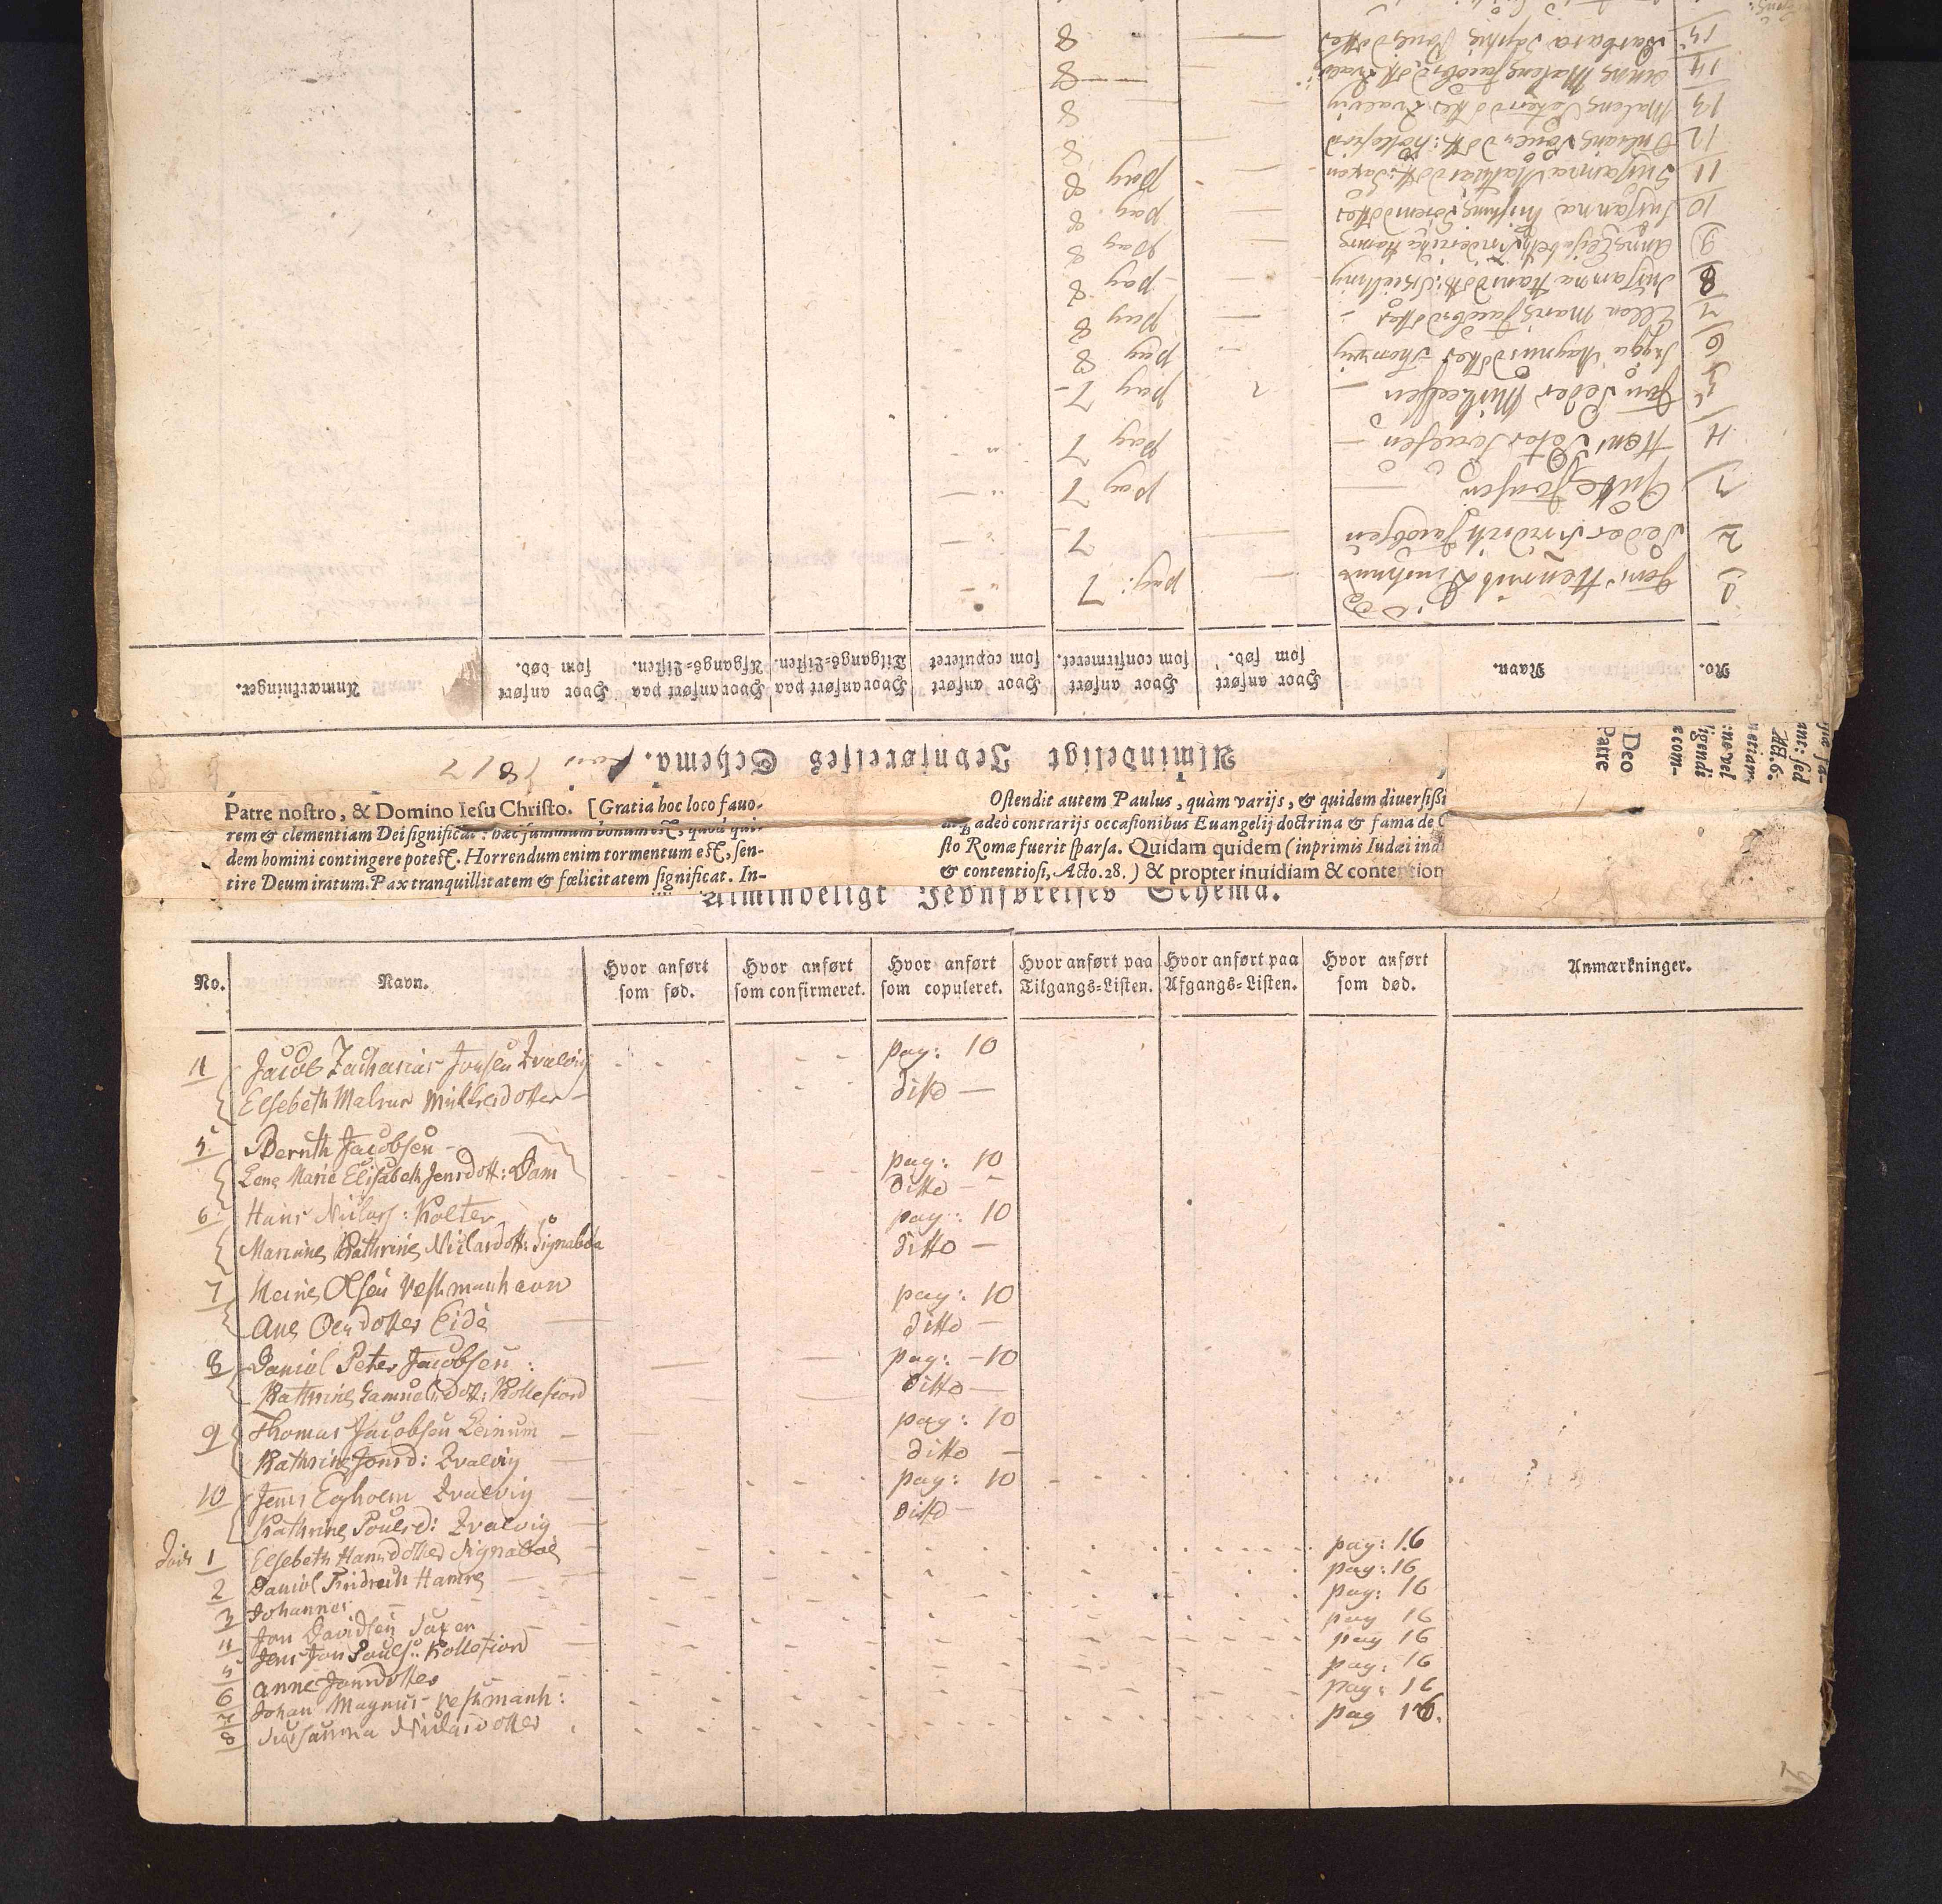 Almindeligt Jevnførelses Schema. 1817
No.
Navn.
Hvor anført som fød.
Hvor anført som confirmeret.
Hvor anført som copuleret
Hvor anført paa Tilgangs-Listen.
Hvor anført paa Afgangs-Listen.
Hvor anført som død.
Anmærkninger.
1 Jens Henrik pag: 7
2 Peder Fridrich Jacobsen 7
3 Jonsen pag 7
4 Hans Peter Poulsen pag 7
5 Jens Peder Mikkelsen pag 7
6 Magnusdotter Thorsvig pag 8
7 Ellen Maria Jacobsdotter pag 8
8 Susanna Hansdott: pag 8
9 Anne Elisabeth Friderica Hamre pag 8
10 Susanna Sørensdotter pag 8
11 Susanna Mathiasdott: Saxen pag 8
12 Poulsdott: Kollefiord 8
13 Malene Petersdotter Qvalvig 8
14 Anne Malene Jacobsdott: Qvalv: 8
15 Barbara Sophie Poulsdotter 8
Patre nostro, & Domino Iesu Christo. [Gratia hoc loco fauo-
rem & clementiam Dei significat: hæc summum bonum est, quod qui-
dem homini contingere potest. Horrendum enim tormentum est, sen-
tire Deum iratum. Pax tranquillitatem & fœlicitatem significat. In-
Ostendit autem Paulus, quàm varijs, & quidem diuersissi
atq adeò contrarijs occasionibus Euangelij doctrina & fama de C
sto Romæ fuerit sparsa. Quidam quidem (inprimis Iudæi ind
& contentiosi, Acto.28.) & propter inuidiam & contention
Deo
Patre
e com-
ligendi
ne vel
etiam
Act.6.
nt: sed
Almindeligt Jevnførelses Schema.
No.
Navn.
Hvor anført som fød.
Hvor anført som confirmeret.
Hvor anført som copuleret.
Hvor anført paa Tilgangs-Listen.
Hvor anført paa Afgangs-Listen.
Hvor anført som død.
Anmærkninger.
4 Jacob Zacharias Joensen Qvalvig pag: 10
Elsebeth Malene Mikkelsdotter ditto
5 Bernth Jacobsen pag: 10
Lene Marie Elisabeth Jensdott: Dam ditto
6 Hans Niclass: Kolter pag: 10
Marinne Kathrine Niclasdott: Signabøa ditto
7 Heine Olsen Vestmanhavn pag: 10
Ane Olesdotter Eide ditto
8 Daniel Peter Jacobsen pag: 10
Kathrine Samuelsdott: Kollefiord ditto
9 Thomas Jacobsen Leinum pag: 10
Kathrine Jonsd: Qvalvig ditto
10 Jens Egholm Qvalvig pag: 10
Kathrine Poulsd: Qvalvig ditto
Døde 1 Elsebeth Hansdotter Signabøe pag: 16
2 Daniel Fridrich Hamre pag: 16
3 Johannes pag: 16
4 Jon Davidsen Saxen pag 16
5 Jens Jon Pouls: Kollefiord pag 16
6 Anne Jonsdotter pag: 16
7 Johan Magnus Vestmanh: pag: 16
8 Susanna Niclasdotter pag 16.